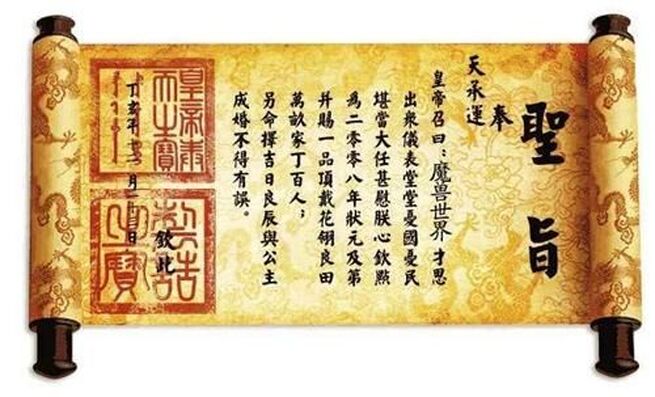 聖旨
奉
天承運
皇帝召曰：魔兽世界 才思
出衆儀表堂堂憂國憂民
堪當大任甚慰朕心欽點
為二零零八年狀元及第
并賜一品頂戴花翎良田
萬畝家丁百人；
另命擇吉日良辰與公主
成婚不得有誤。
欽此
丁亥年 月 日
皇帝奉天之寶
制誥之寶